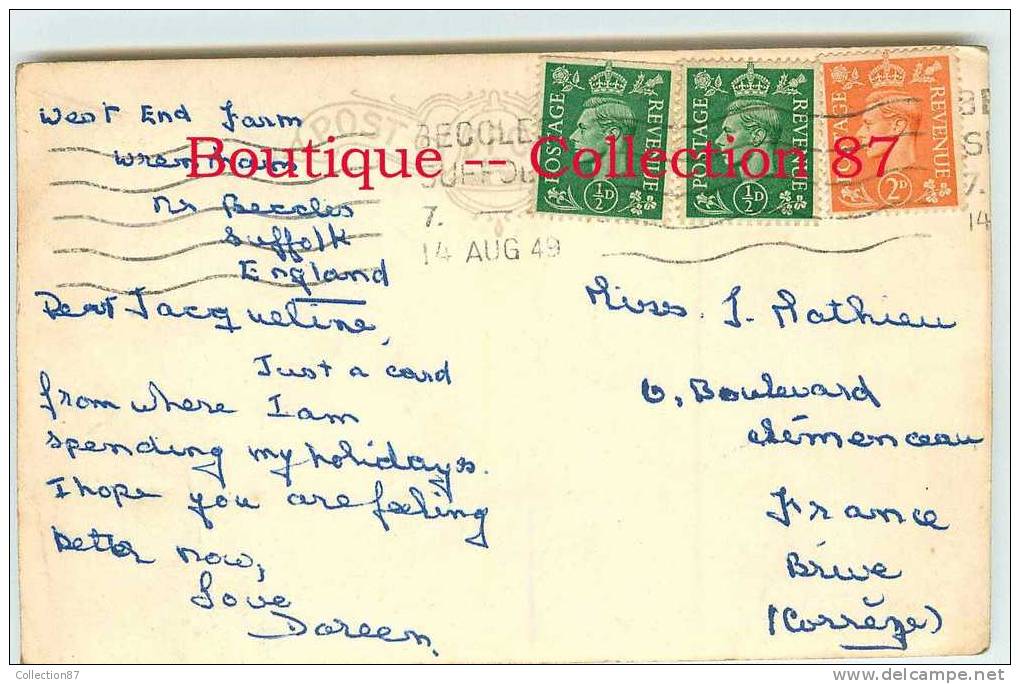 West End Farm
Wrentham
Nr Beccles
Suffolk
England
Dear Jacqueline,
Just a card
from where I am
spending my holidays.
I hope you are feeling
better now,
Love
Doreen.
POST
BECCLE
SUFFOL
7.
14 AUG 49
POSTAGE REVENUE
½D
POSTAGE REVENUE
½D
POSTAGE REVENUE
2D
BE
S
7.
14
Boutique -- Collection 87
Miss. J. Mathieu
6, Boulevard
Clémenceau
France
Brive
(Corrèze)
Collection87
www.delcampe.net